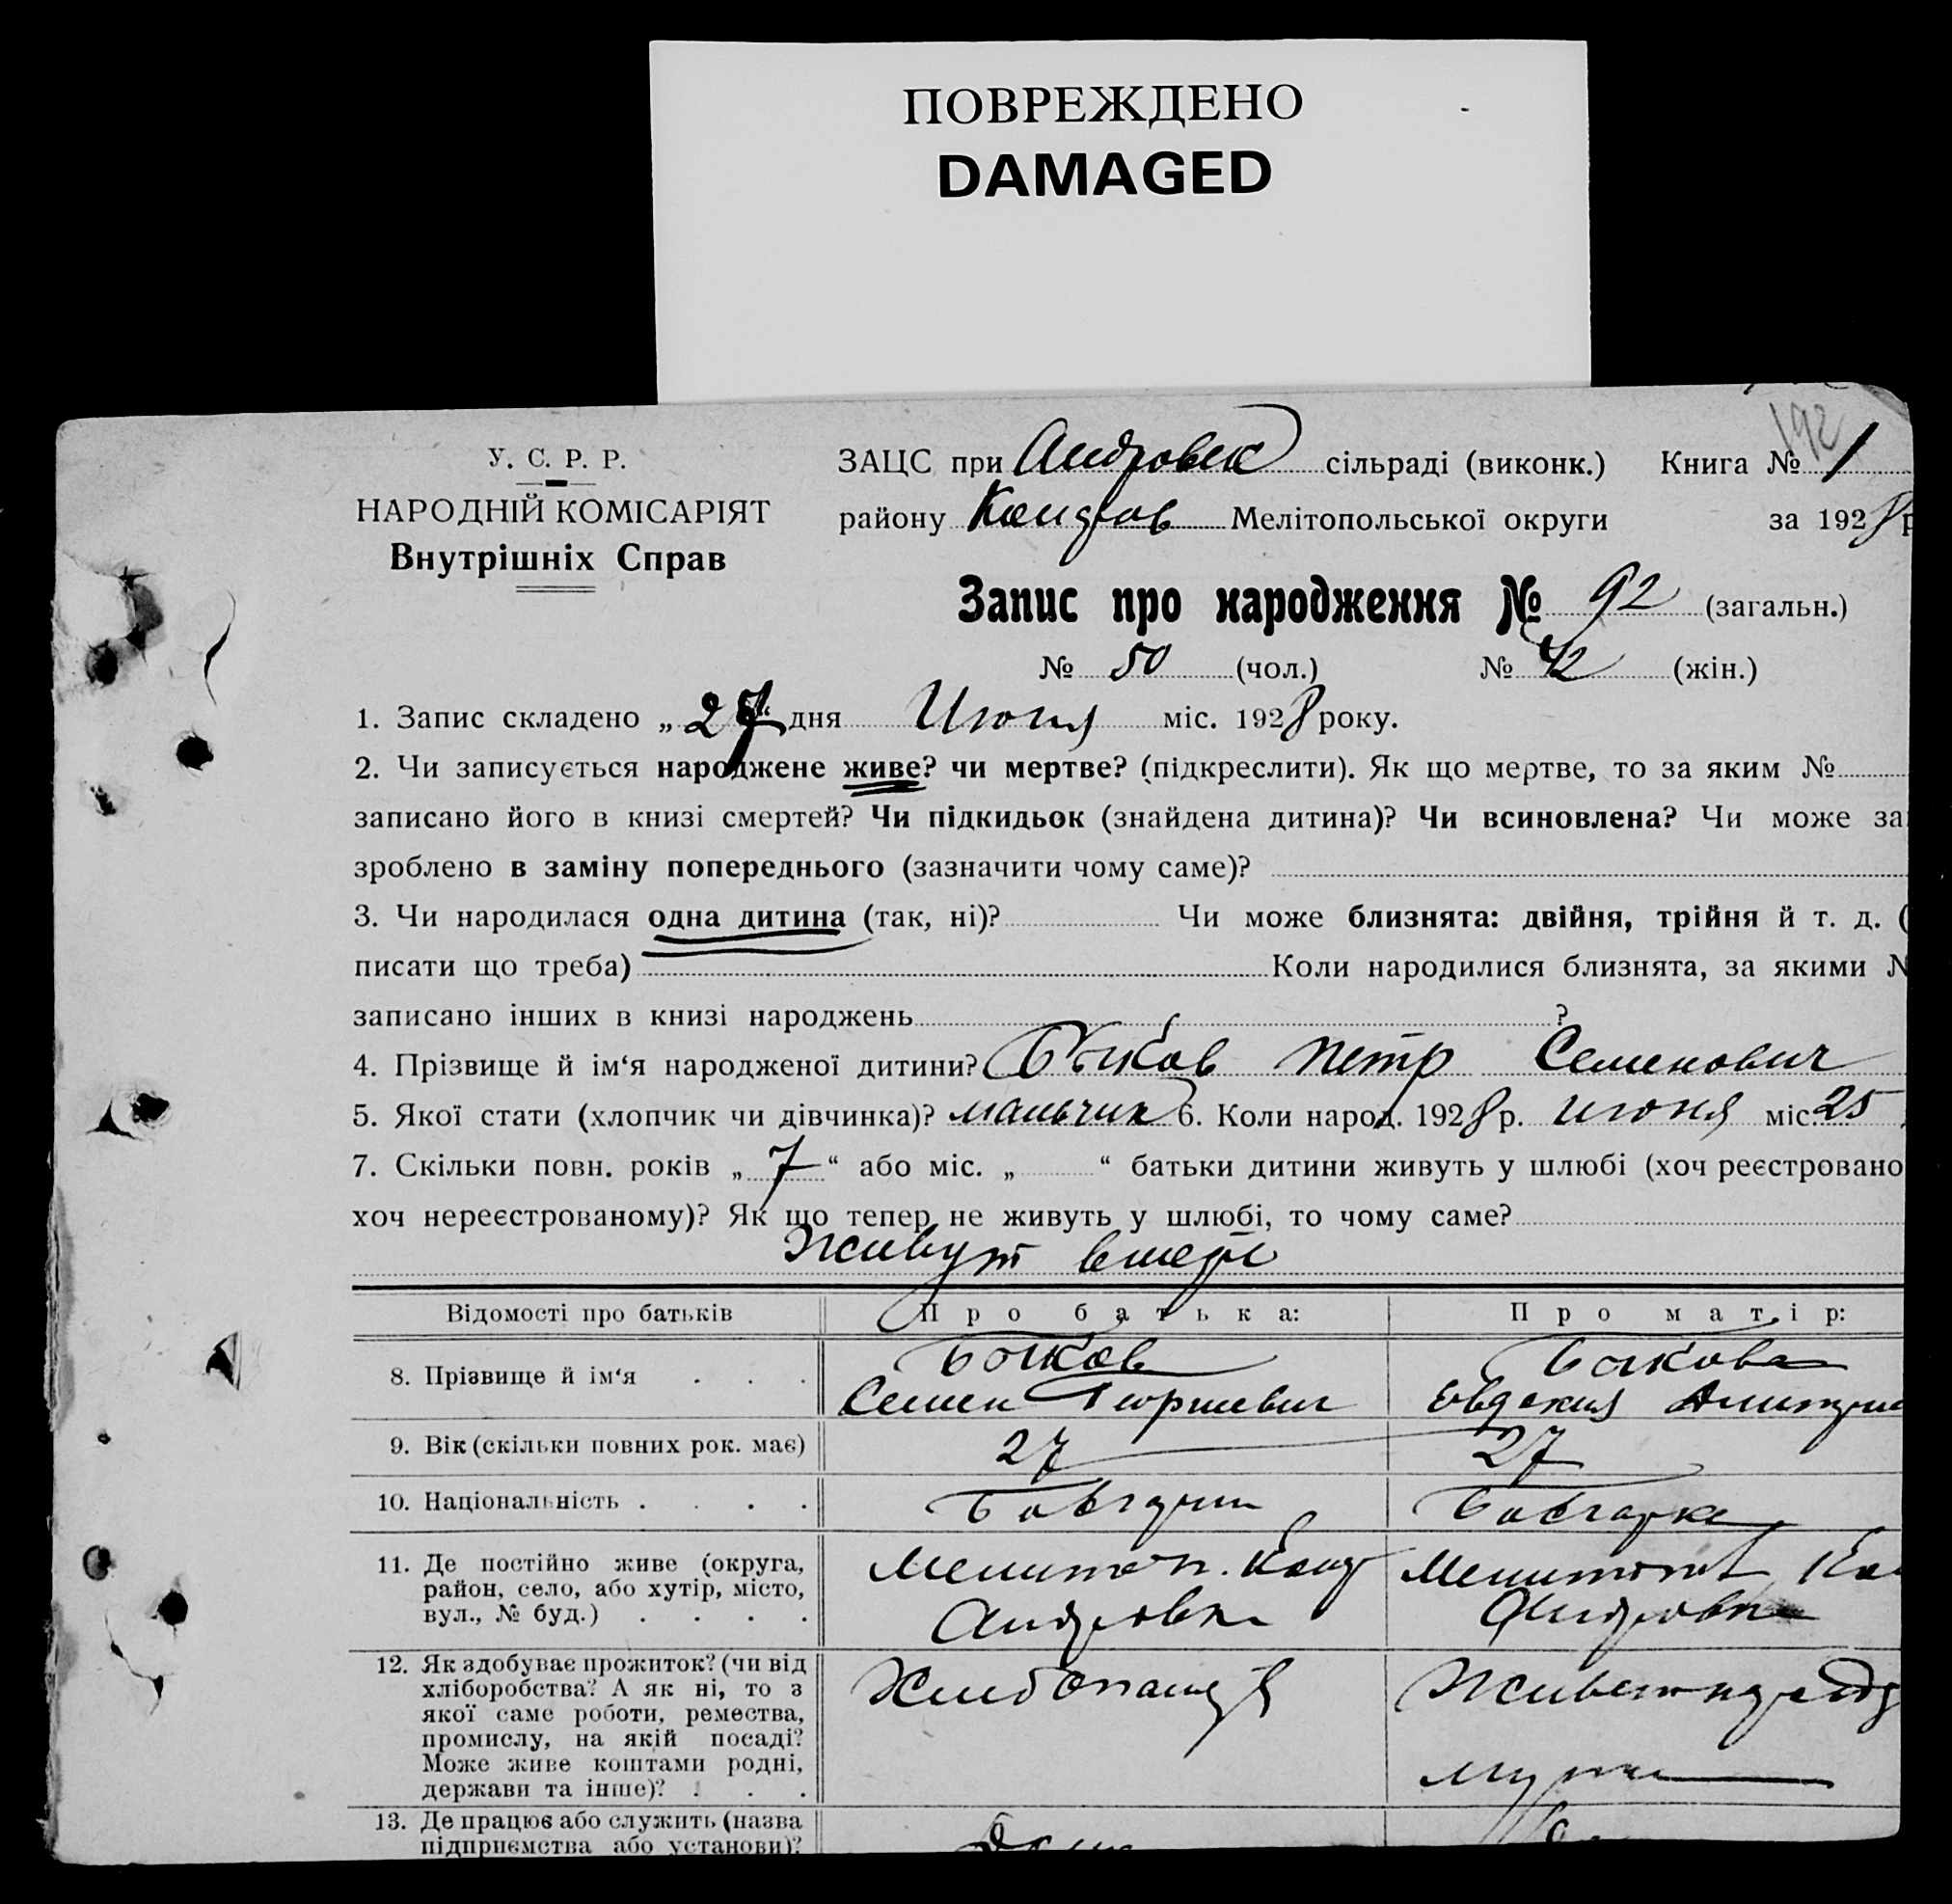 ПОВРЕЖДЕНО
DAMAGED
192
У. С. Р. Р.
НАРОДНІЙ КОМІСАРІЯТ
Внутрішніх Справ
ЗАЦС при Андровск сільраді (виконк.) Книга № 1
району Мелітопольської округи за 1928 р
Запис про народження № 92 (загальн.)
№ 50 (чол.) № 42 (жін.)
1. Запис складено „27“ дня Июня міс. 1928 року.
2. Чи записується народжене живе? чи мертве? (підкреслити). Як що мертве, то за яким №
записано його в книзі смертей? Чи підкидьок (знайдена дитина)? Чи всиновлена? Чи може за
зроблено в заміну попереднього (зазначити чому саме)?
3. Чи народилася одна дитина (так, ні)? Чи може близнята: двійня, трійня й т. д. (
писати що треба) Коли народилися близнята, за якими №
записано інших в книзі народжень ?
4. Прізвище й ім‘я народженої дитини? Быков Петр Семенович
5. Якої стати (хлопчик чи дівчинка)? мальчик 6. Коли народ. 1928 р. июня міс. 25
7. Скільки повн. років „7“ або міс. „ “ батьки дитини живуть у шлюбі (хоч реєстровано
хоч нереєстрованому)? Як що тепер не живуть у шлюбі, то чому саме?
Живут
Відомості про батьків Про батька: Про матір:
8. Прізвище й ім‘я . . . Быков Быкова
Семен Георгиевич Евдокия Дмитрие
9. Вік (скільки повних рок. має) 27 27
10. Національність . . . . Болгарин Болгарка
11. Де постійно живе (округа, район, село, або хутір, місто, вул., № буд.) . . . . Мелитоп. Конд Мелитопол
Андровка Андровка
12. Як здобуває прожиток? (чи від хліборобства? А як ні, то з якої саме роботи, ремества, промислу, на якій посаді? Може живе коштами родні, держави та інше)? . . . Хлебопашец Живет на
мужа
13. Де працює або служить (назва
підприємства або установи)?